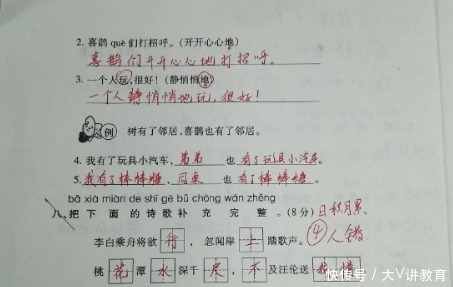 2. 喜鹊 què 们打招呼。(开开心心地)
喜鹊们开开心心地打招呼。
3. 一个人玩,很好!(静悄悄地)
一个人静悄悄地玩,很好!
例 树有了邻居,喜鹊也有了邻居。
4. 我有了玩具小汽车,弟弟也有了玩具小汽车。
5. 我有了棒棒糖,同桌也有了棒棒糖。
bǎ xià miàn de shī gē bǔ chōng wán zhěng
八、把下面的诗歌补充完整。(8分) 日积月累
李白乘舟将欲行,忽闻岸上踏歌声。 ④人错
桃花潭水深千尺,不及汪伦送我情
快传号/大V讲教育